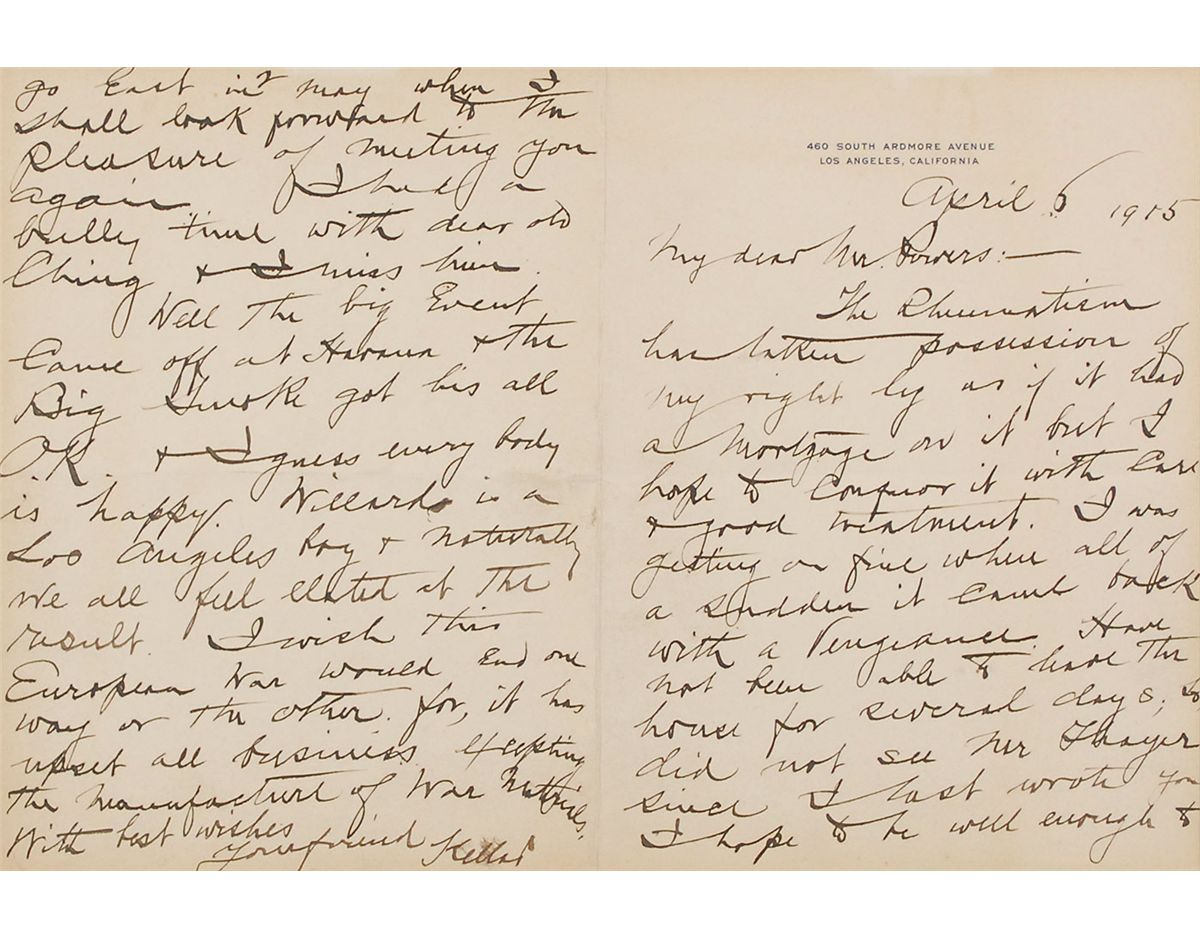 460 SOUTH ARDMORE AVENUE
LOS ANGELES, CALIFORNIA
April 6 1915
My dear Mr. Powers:—
The Rheumatism
has taken possession of
my right leg as if it had
a Mortgage on it but I
hope to Conquor it with Care
& good treatment. I was
getting on fine when all of
a sudden it Came back
with a Vengeance. Have
not been able to leave the
house for several days, so
did not see Mr Thayer
since I last wrote you
I hope to be well enough to
go East in May when I
shall look forward to the
pleasure of meeting you
again I had a
bully time with dear old
Ching & I miss him.
Well the big Event
Came off at Havana & the
Big Smoke got his all
O.K. & I guess every body
is happy. Willard is a
Los Angeles Boy & naturally
we all feel elated at the
result. I wish this
European War would End one
way or the other. for, it has
upset all business excepting
the Manufacture of War Materials.
With best wishes
Your friend Kellar